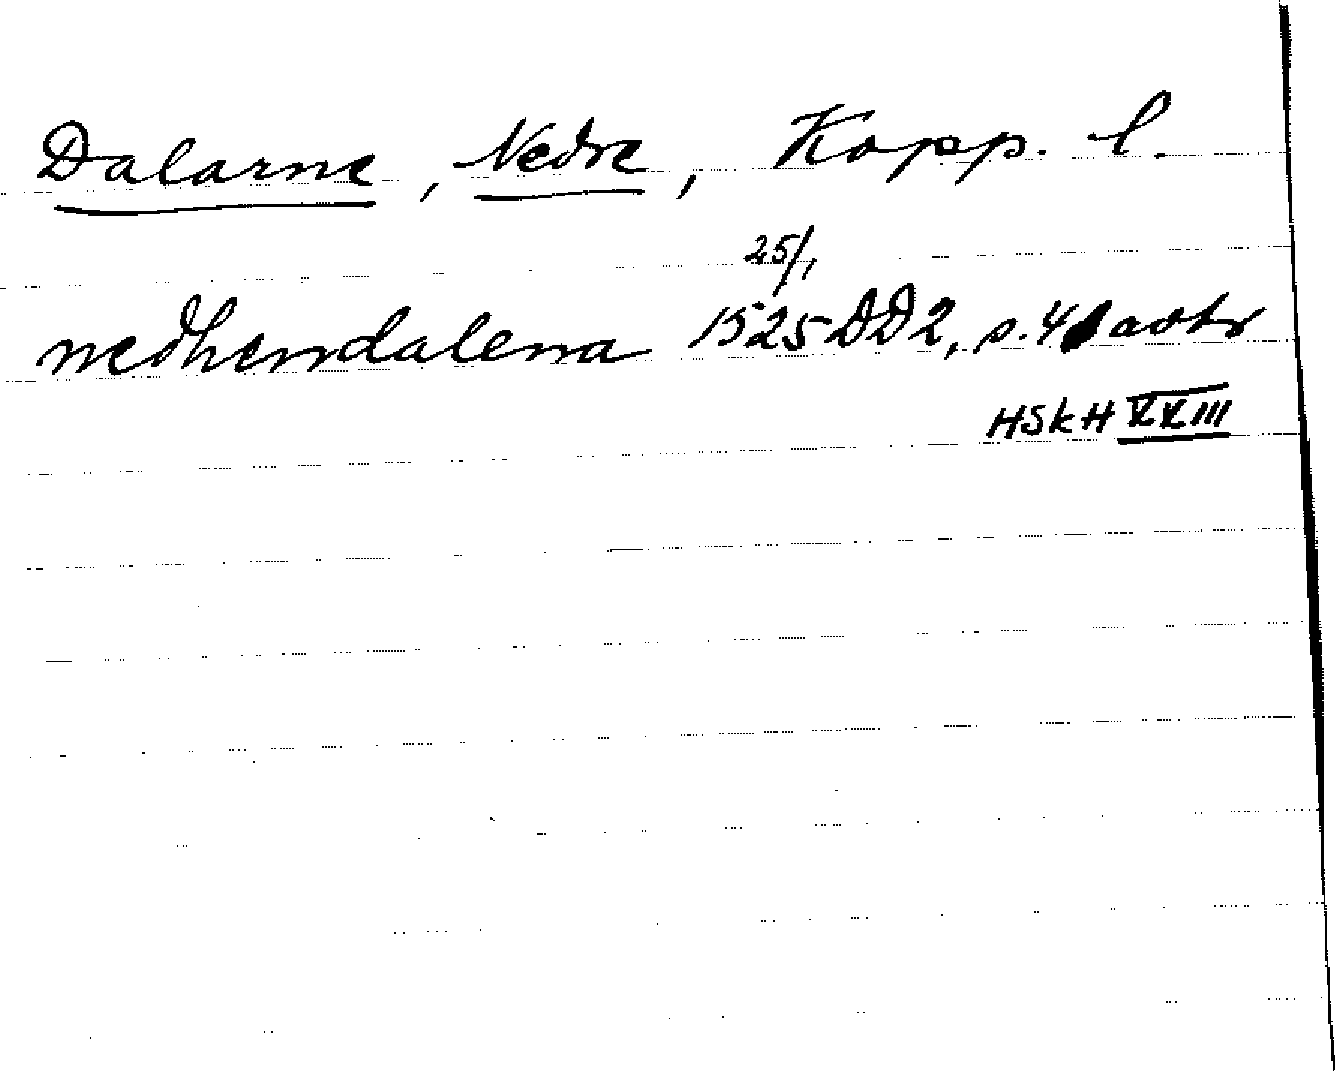 Dalarne, Nedre, Kopp. l.
25/1
nedhendalena 1525 DD2, s. 41 avtr
HSkH XXIII